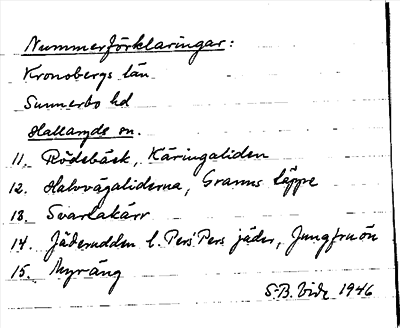 Nummerförklaringar:
Kronobergs län
Sunnerbo hd
Hallaryds sn.
11. Rödebäck, Käringaliden
12. Halvvägaliderna, Granns täppe
13. Svartakärr
14. Jäderudden l. Pers Pers jäder, Jungfruön
15. Myräng
S-B. Vide 1946